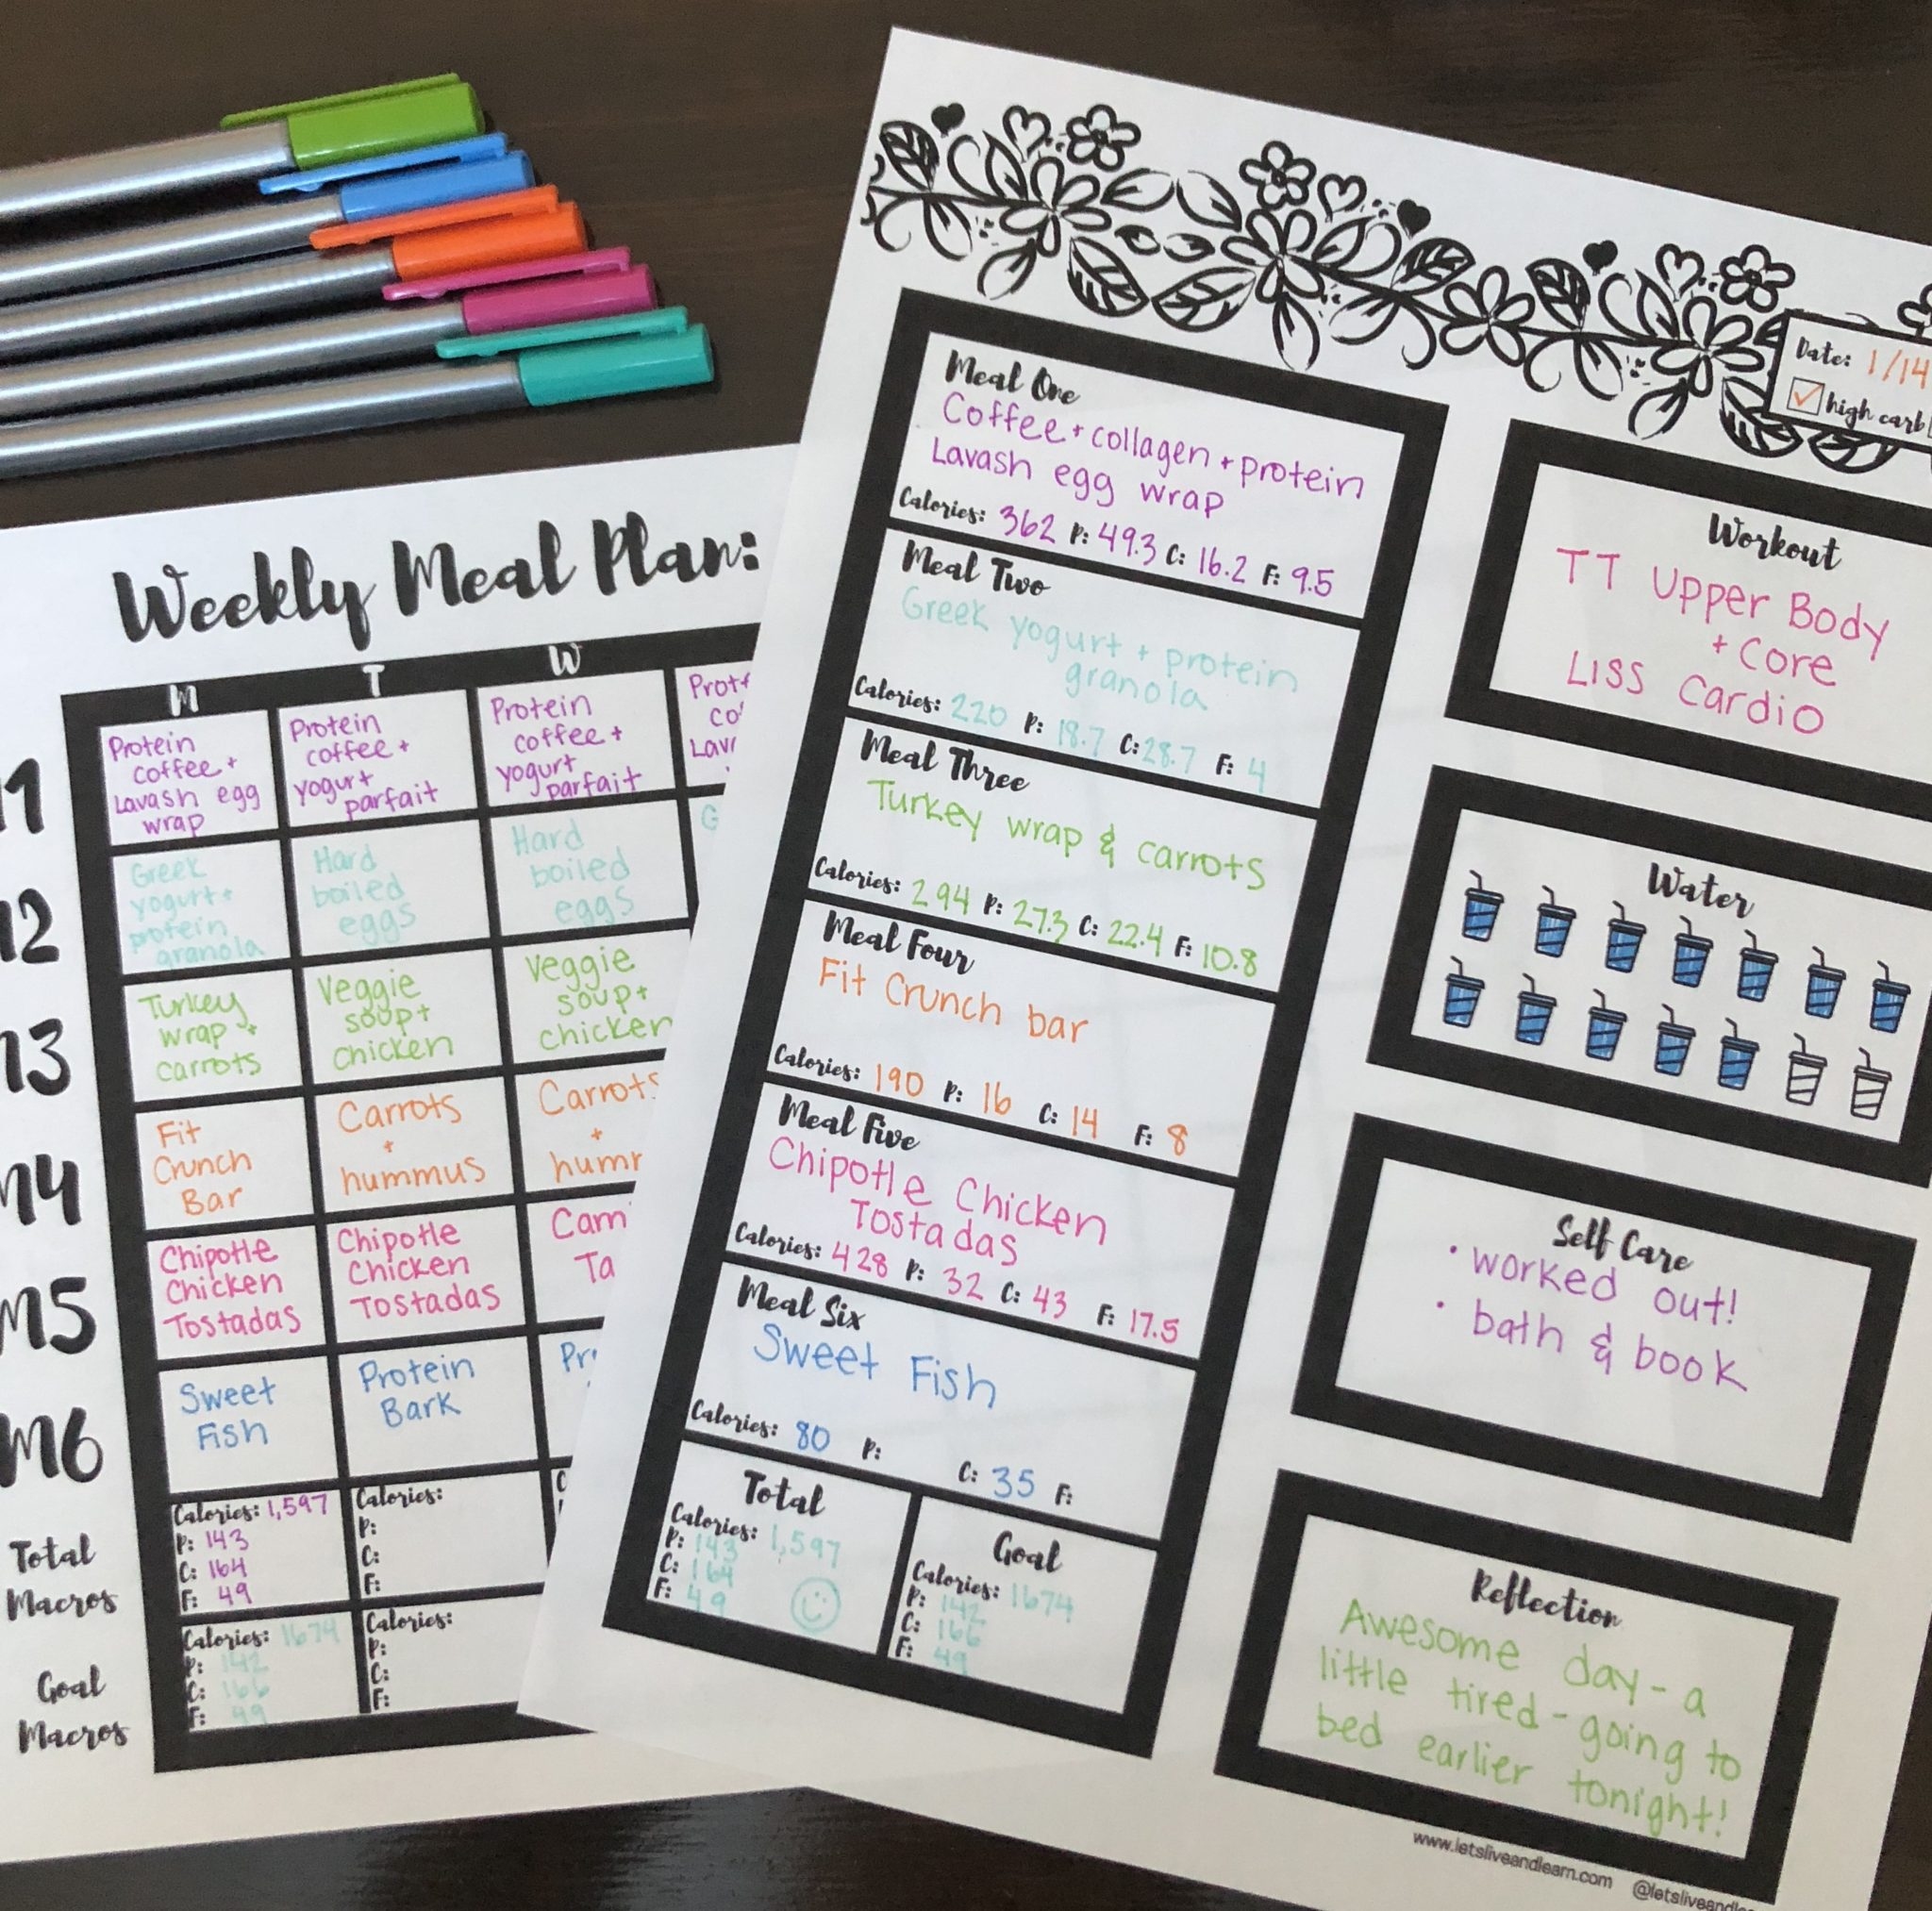 Weekly Meal Plan:
M T W
M1
Protein
coffee +
Lavash egg
wrap
Protein
coffee +
yogurt
parfait
Protein
coffee +
yogurt
parfait
M2
Greek
yogurt +
protein
granola
Hard
boiled
eggs
Hard
boiled
eggs
M3
Turkey
wrap +
carrots
Veggie
soup +
chicken
Veggie
soup +
chicken
M4
Fit
Crunch
Bar
Carrots
+
hummus
Carrots
+
M5
Chipotle
Chicken
Tostadas
Chipotle
Chicken
Tostadas
M6
Sweet
Fish
Protein
Bark
Total
Macros
Calories: 1,597
P: 143
C: 164
F: 49
Calories:
P:
C:
F:
Goal
Macros
Calories: 1674
P: 142
C: 166
F: 49
Calories:
P:
C:
F:
Date: 1/14
high carb
Meal One
Coffee + collagen + protein
Lavash egg wrap
Calories: 362 P: 49.3 C: 16.2 F: 9.5
Meal Two
Greek yogurt + protein
granola
Calories: 220 P: 18.7 C: 28.7 F: 4
Meal Three
Turkey wrap & carrots
Calories: 294 P: 27.3 C: 22.4 F: 10.8
Meal Four
Fit Crunch bar
Calories: 190 P: 16 C: 14 F: 8
Meal Five
Chipotle Chicken
Tostadas
Calories: 428 P: 32 C: 43 F: 17.5
Meal Six
Sweet Fish
Calories: 80 P: C: 35 F:
Total
Calories: 1,597
P: 143
C: 164
F: 49
Goal
Calories: 1674
P: 142
C: 166
F: 49
Workout
TT Upper Body
+ Core
LISS Cardio
Water
Self Care
• worked out!
• bath & book
Reflection
Awesome day - a
little tired - going to
bed earlier tonight!
www.letsliveandlearn.com